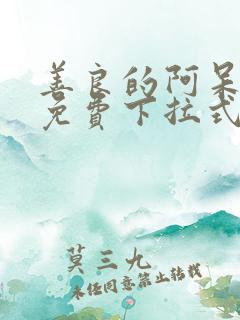 善良的阿呆
免费下拉式
莫三九
未经同意禁止转载